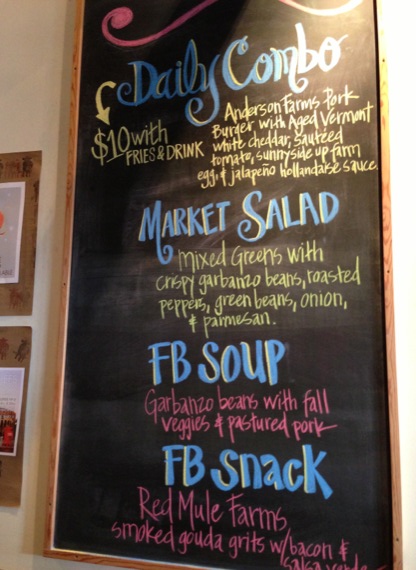 Daily Combo
$10 with
FRIES & DRINK
Anderson Farms Pork
Burger with Aged Vermont
white cheddar, sautzed
tomato, sunnyside up farm
egg, & jalapeno hollandaise sauce.
MARKET SALAD
mixed Greens with
crispy garbanzo beans, roasted
peppers, green beans, onion,
& parmesan.
FB SOUP
Garbanzo beans with fall
veggies & pastured pork
FB Snack
Red Mule Farms
smoked gouda grits w/bacon &
salsa verde